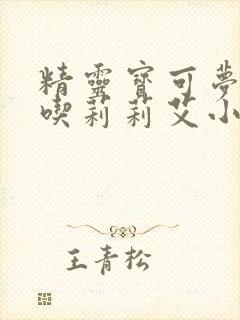 精靈寶可夢
喫莉莉艾小
王青松